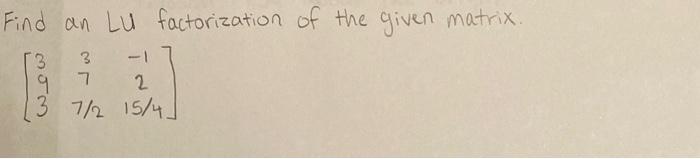 Find an LU factorization of the given matrix.
3 3 -1
9 7 2
3 7/2 15/4